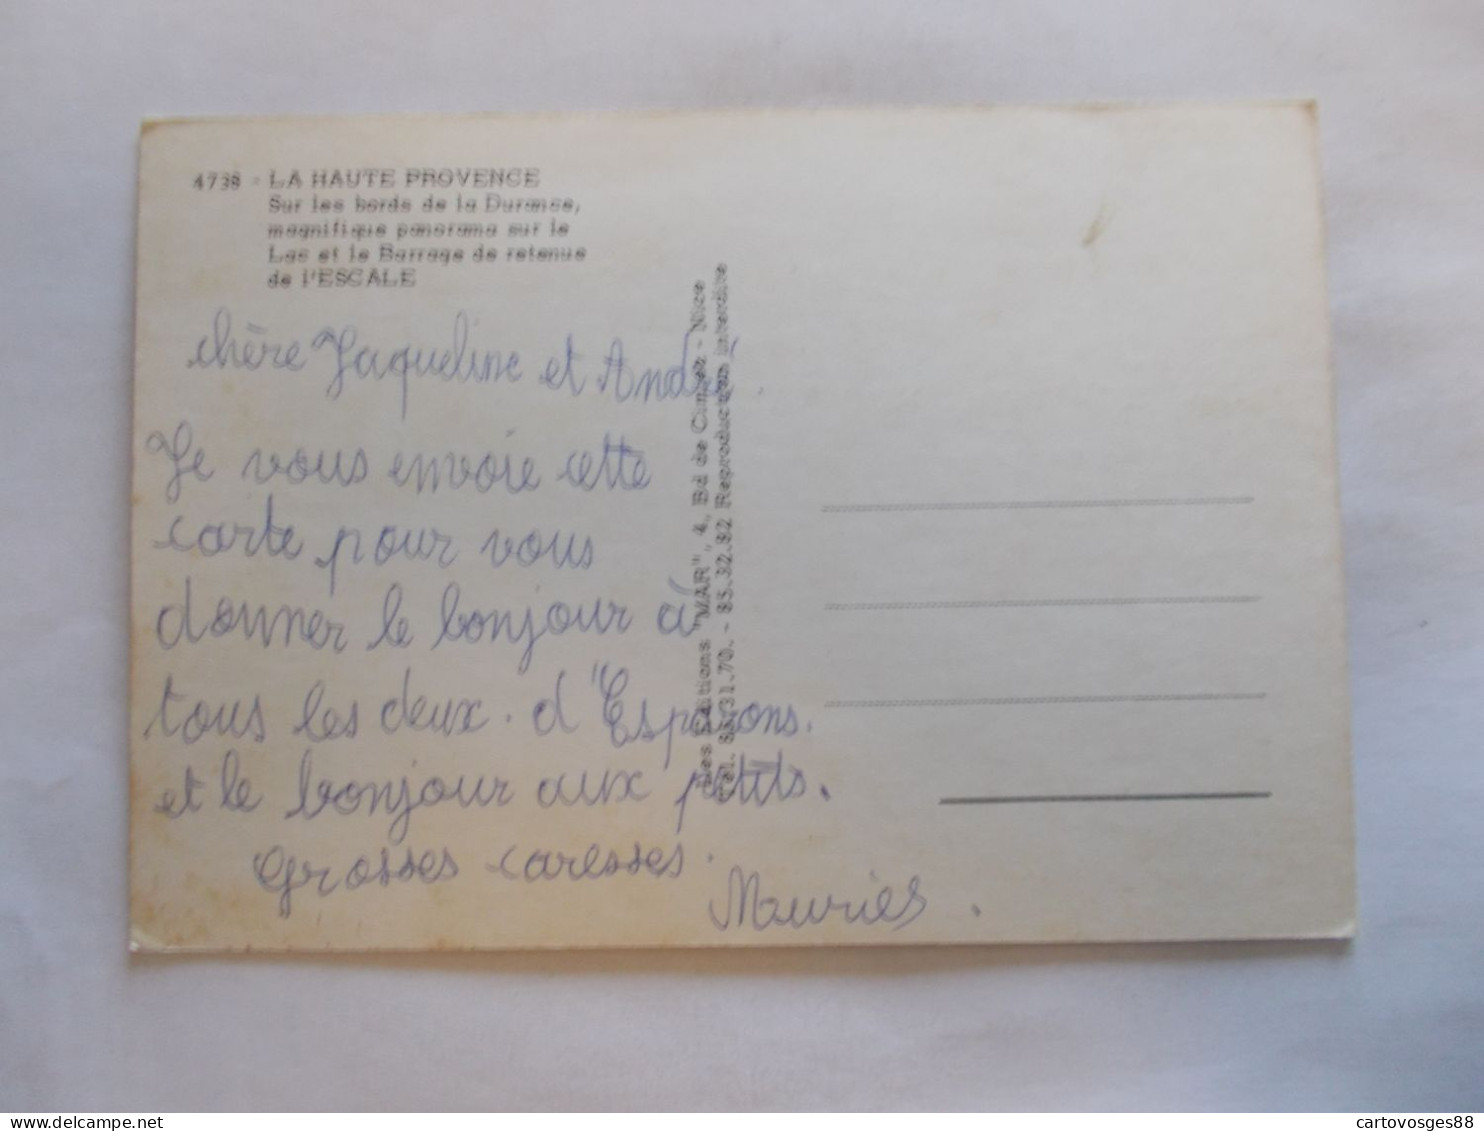 4738 - LA HAUTE PROVENCE
Sur les bords de la Durance,
magnifique panorama sur le
Lac et le Barrage de retenue
de l'ESCALE
chère Jaqueline et André.
Je vous envoie cette
carte pour vous
donner le bonjour à
tous les deux. d'Esparrons.
et le bonjour aux petits.
Grosses caresses.
Mauries.
Les Editions "MAR", 4, Bd de Cimiez - Nice
Tél. 85.31.70. - 85.32.82 Reproduction interdite
cartovosges88